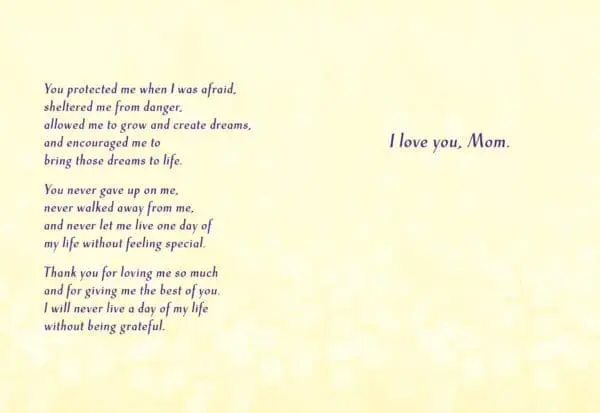 You protected me when I was afraid,
sheltered me from danger,
allowed me to grow and create dreams,
and encouraged me to
bring those dreams to life.
You never gave up on me,
never walked away from me,
and never let me live one day of
my life without feeling special.
Thank you for loving me so much
and for giving me the best of you.
I will never live a day of my life
without being grateful.
I love you, Mom.